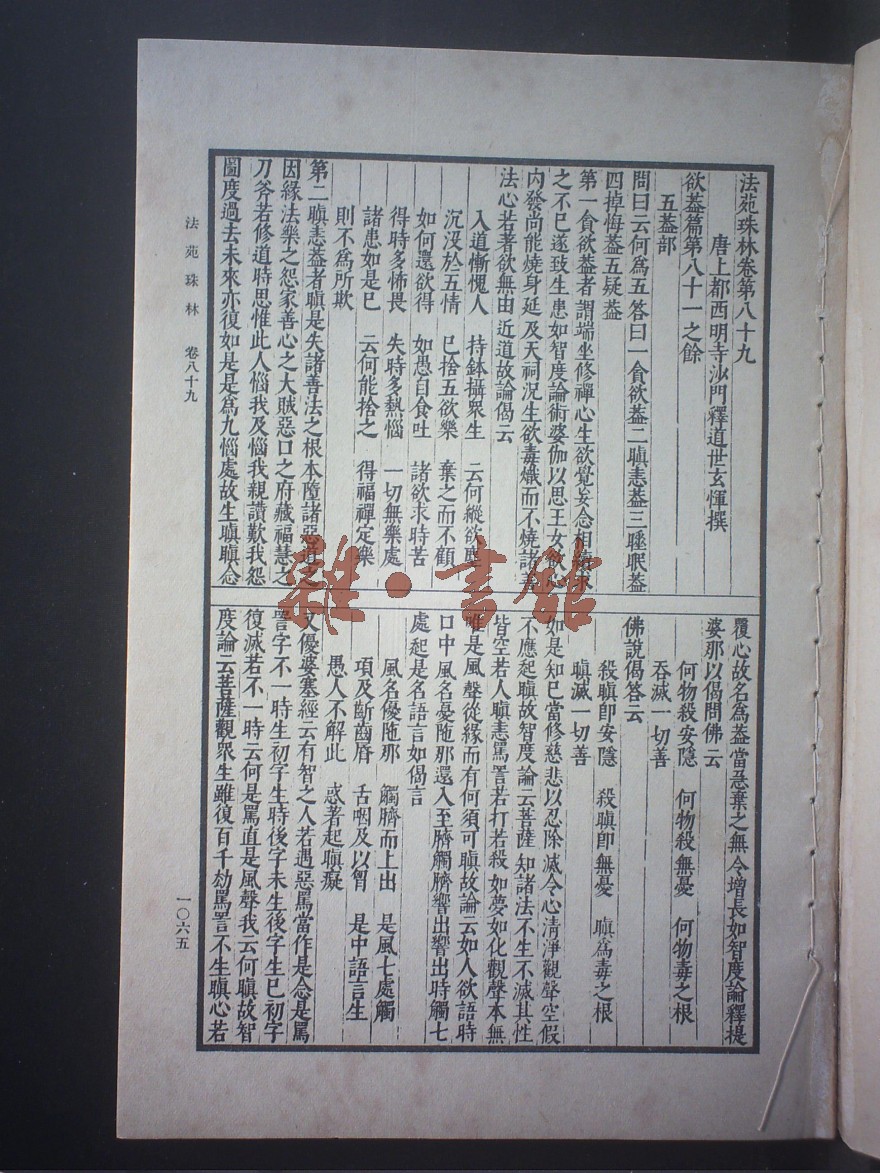 法苑珠林卷第八十九
唐上都西明寺沙門釋道世玄惲撰
欲蓋篇第八十一之餘
五蓋部
問曰云何爲五答曰一貪欲蓋二瞋恚蓋三睡眠蓋
四掉悔蓋五疑蓋
第一貪欲蓋者謂端坐修禪心生欲覺妄念相續求
之不已遂致生患如智度論術婆伽以思王女欲心
内發尚能燒身延及天祠況生欲毒熾而不燒諸善
法心若著欲無由近道故論偈云
入道慚愧人　持鉢攝衆生　云何縱欲塵
沉没於五情　已捨五欲樂　棄之而不顧
如何還欲得　如愚自食吐　諸欲求時苦
得時多怖畏　失時多熱惱　一切無樂處
諸患如是已　云何能捨之　得福禪定樂
則不爲所欺
第二瞋恚蓋者瞋是失諸善法之根本墮諸惡道之
因緣法樂之怨家善心之大賊惡口之府藏福慧之
刀斧若修道時思惟此人惱我及惱我親讚歎我怨
圖度過去未來亦復如是是爲九惱處故生瞋瞋念
覆心故名爲蓋當急棄之無令增長如智度論釋提
婆那以偈問佛云
何物殺安隱　何物殺無憂　何物毒之根
吞滅一切善
佛說偈答云
殺瞋卽安隱　殺瞋卽無憂　瞋爲毒之根
瞋滅一切善
如是知已當修慈悲以忍除滅令心清淨觀聲空假
不應起瞋故智度論云菩薩知諸法不生不滅其性
皆空若人瞋恚罵詈若打若殺如夢如化觀聲本無
唯是風聲從緣而有何須可瞋故論云如人欲語時
口中風名憂陁那還入至臍觸臍響出響出時觸七
處起是名語言如偈言
風名優陁那　觸臍而上出　是風七處觸
項及齗齒脣　舌咽及以胷　是中語言生
愚人不解此　惑著起瞋癡
又優婆塞經云有智之人若遇惡罵當作是念是罵
詈字不一時生初字生時後字未生後字生已初字
復滅若不一時云何是罵直是風聲我云何瞋故智
度論云菩薩觀衆生雖復百千劫罵詈不生瞋心若
法苑珠林　卷八十九
一〇六五
雜·書館